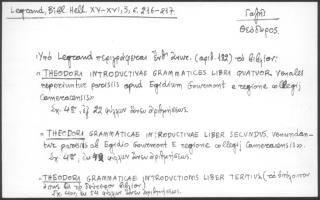 Legrand, Bibl. Hell. XV-XVI, 3, σ. 216-217.
Γαζῆς
Θεόδωρος.
Ὑπὸ Legrand περιγράφεται (ἀριθ. 192) τὸ βιβλίον:
« THEODORI INTRODUCTIVAE GRAMMATICES LIBRI QUATUOR. Venales
reperiuntur parisiis apud Egidium Gourmont e regione collegij
Cameracensis»
Σχ. 4ον, φύλλων ἄνευ ἀριθμήσεως.
« THEODORI GRAMMATICAE INTRODUCTIVAE LIBER SECUNDUS. venundan-
tur parisiis ab Egidio Gourmont E regione collegij Cameracensis».
Σχ. 4ον, φύλλων ἄνευ ἀριθμήσεως.
« THEODORI GRAMMATICAE INTRODUCTIONIS LIBER TERTIUS
τὸ δεύτερον βιβλίον)
Σχ. 4ον 54 φύλλων ἄνευ ἀριθμήσεως.